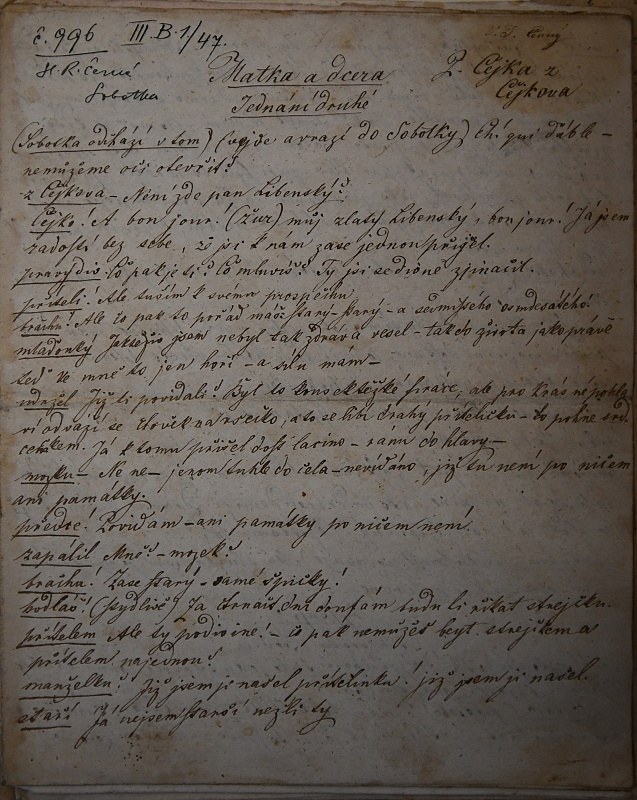 č. 996 III. B. 1/47. Černý
H. R. Černá Matka a dcera P. Čejka z
Sobotka Čejkova
Jednání druhé
(Sobotka odchází v tom) (vejde a vrazí do Sobotky) Eh! qui diable –
nemůžeme oči otevřít?
z Čejkova – Není zde pan Libenský?
Čejko! A bon jour! (žur) můj zlatý Libenský, bon jour! Já jsem
radostí bez sebe, že jsi k nám zase jednou přijel.
zpravydiv Co pak je ti? Co mluvíš? Ty jsi se divně zjinačil.
příteli! Ale tuším k svému prospěchu
brachu! Ale co pak to pořád máš starý – starý – a sedmistého osmdesátého!
mladonký Jaktěživ jsem nebyl tak zdráv a vesel – tak do života jako právě
teď Ve mně to jen hoří – a sílu mám –
udržel Již ti povídali? Byl to těžké , ale pro krásné pohla
ví odváží se člověk na všecko, a to se líbí drahý přítelíčku – to pohne srd
cem. Já k tomu přišel dost lacino – ranu do hlavy –
mozku – Ne ne – jenom tuhle do čela – nevídáno, již tu není po ničem
ani památky.
předce! Povídám – ani památky po ničem není.
zapálil Mně? – mozek?
brachu! Zase starý – samé špičky!
bodlas? (stydlivě) Já čtrnáct dní doufám budu li říkat strejčku.
přítelem Ale ty podivíne! – co pak nemůžeš beyt strejčkem a
přítelem najednou?
manželku? Již jsem ji našel přítelínku! již jsem ji našel.
staří Já nejsem starší nežli ty